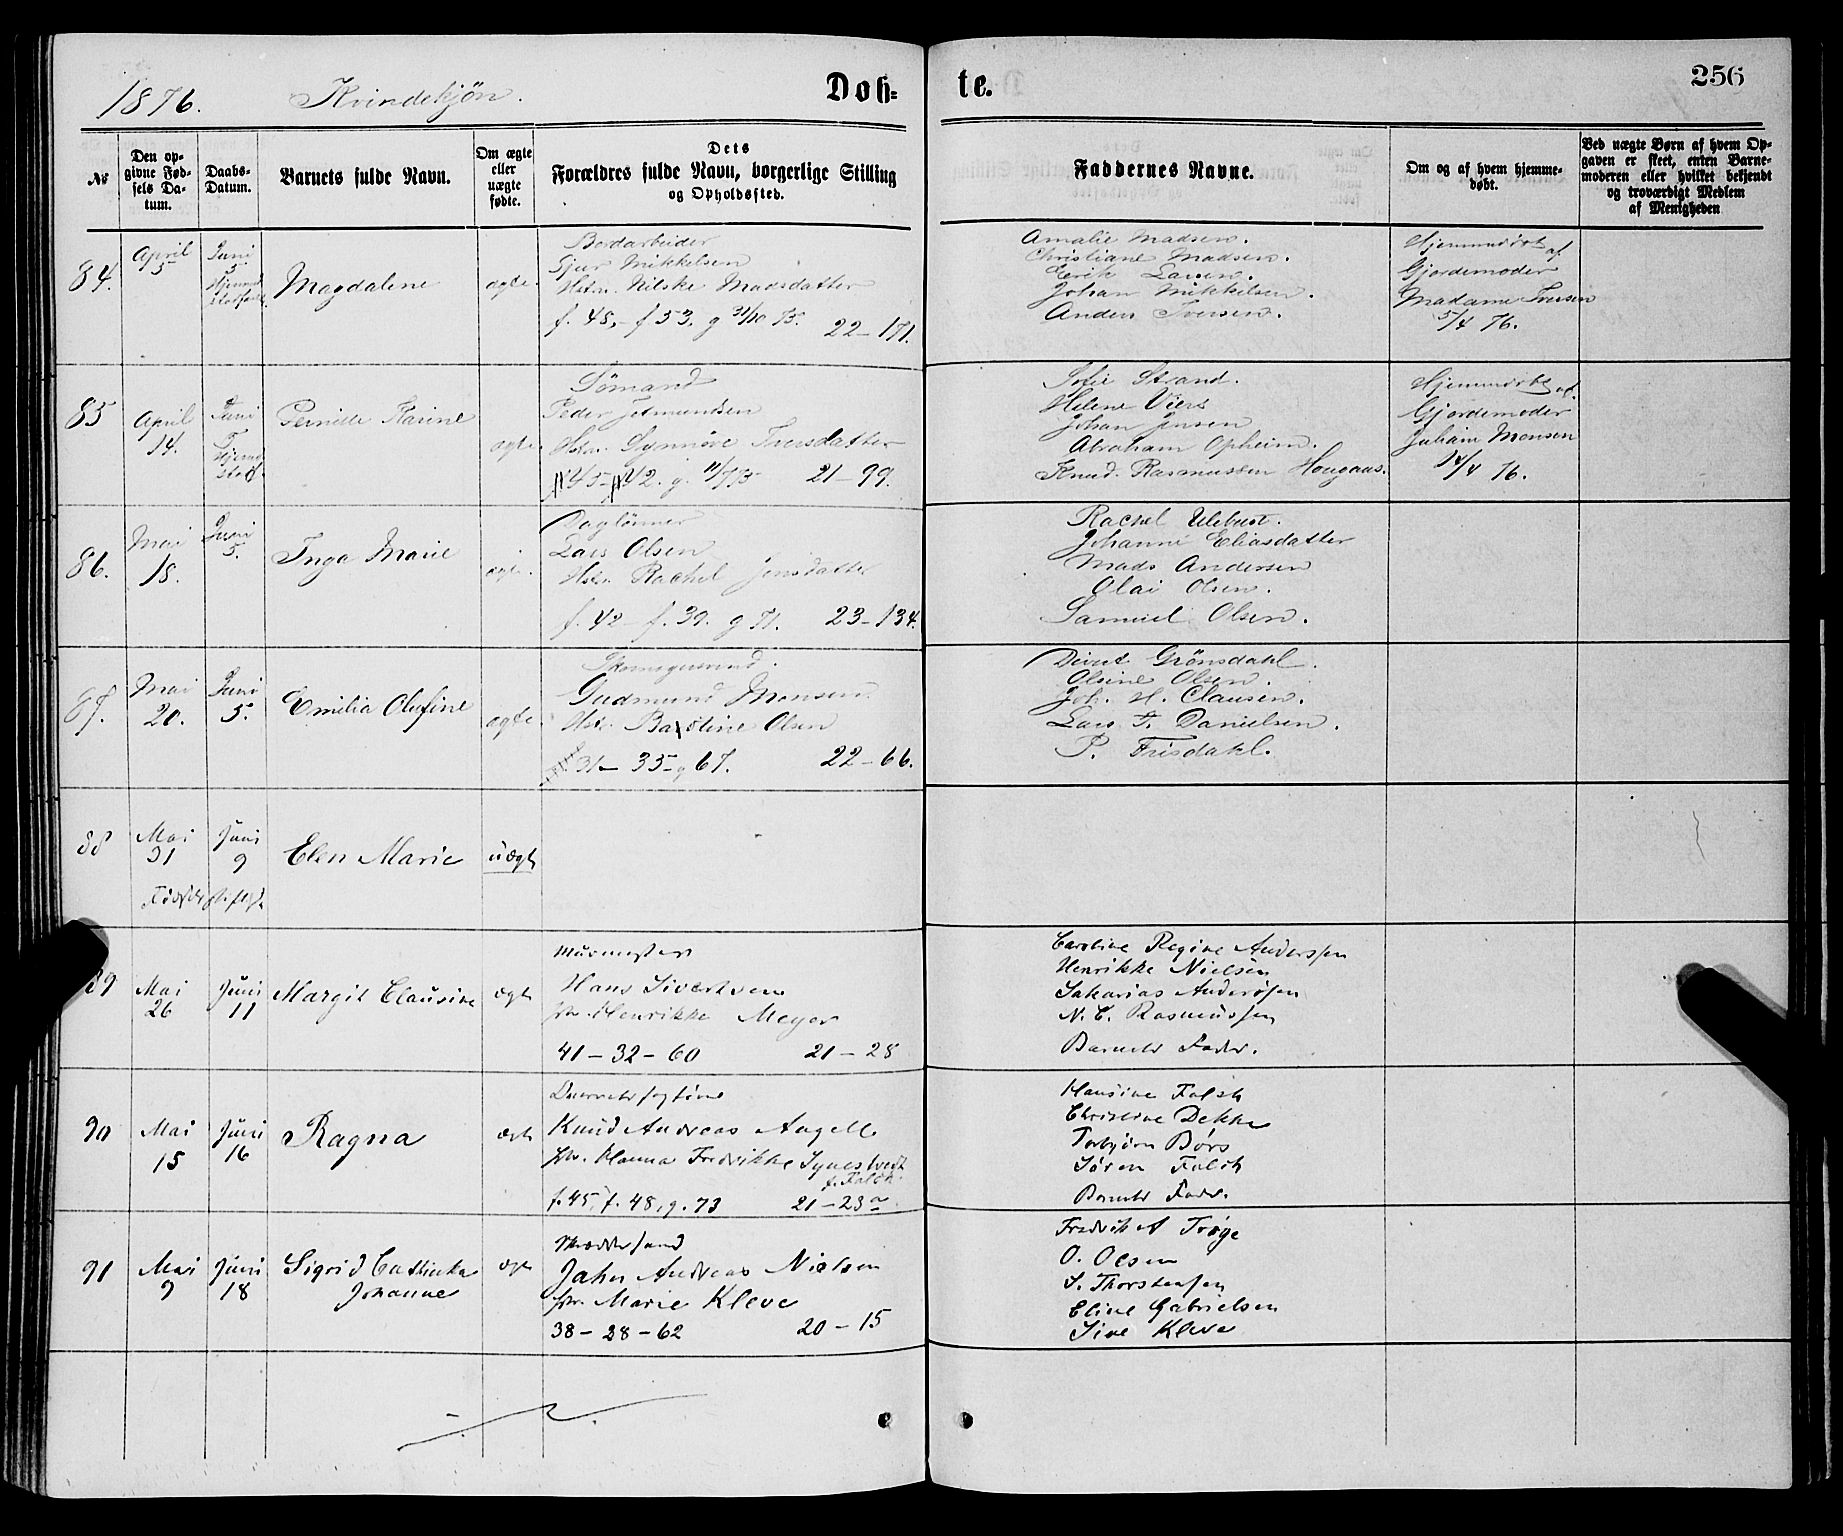 1876. Kvindekjøn. Døb= te. 256
№
Den op-
givne Fød-
sels Da-
tum.
Daabs-
Datum.
Barnets fulde Navn.
Om ægte
eller
uægte
fødte.
Dets
Forældres fulde Navn, borgerlige Stilling
og Opholdssted.
Faddernes Navne.
Om og af hvem hjemme-
døbt.
Ved uægte Børn af hvem Op-
gaven er skeet, enten Barne-
moderen eller hvilket bekjendt
og troværdigt Medlem
af Menigheden
84.
April
5
Juni
5
Hjemmed.
stadf.
Magdalene
ægte
Bordarbeider
Sjur Mikkelsen
Hstr. Nilske Madsdatter
f. 48,- f 53. g 31/10 75. 22-171.
Amalie Madsen.
Christiane Madsen.
Erik Larsen.
Johan Mikkelsen.
Anders Iversen.
Hjemmedøbt af
Gjordemoder
Madame Iversen
5/4 76.
85
April
14.
Juni
5
Hjemmed.
stadf.
Pernille Karine
ægte
Sømand
Peder
Hstr. Synnøve Iversdatter
45- 42. g. 11/7 75 21-99.
Sofie Strand.
Helene Viers
Johan Jensen
Abraham Opheim.
Knud Rasmussen Hougaas.
Hjemmedøbt af
Gjordemoder
Juliane Monsen
14/4 76.
86.
Mai
18.
Juni
5.
Inga Marie
ægte.
Daglønner
Lars Olsen
Hstr. Rachel Jensdatter
f. 42- f. 39. g 71. 23-134.
Rachel Ulebust.
Johanne Eliasdatter
Mads Andersen
Olai Olsen.
Samuel Olsen.
87.
Mai
20.
Juni
5.
Emilia Olufine
ægte
Skomagersvend.
Gudmund Monsen
Hstr. Baroline Olsen
31- 35- g 67. 22-66.
Grönsdahl.
Olsine Olsen.
Joh. H. Clausen.
Lars T. Danielsen.
P. Frisdahl.
88
Mai
31
Juni
9
Fødselsstiftelsen
Elen Marie
uægt
89
Mai
26
Juni
11
Margit Clausine
ægt
Murmester
Hans Sivertsen
Hstr. Henrikke Meyer
41-32-60 21-28
Caroline Regine Anderssen
Henrikke Nielsen
Sakarias Anderssen
N. C. Rasmussen
Barnets Fader.
90
Mai
15
Juni
16
Ragna
ægt
Knud Andreas Angell
Hstr. Hanna Fredrikke Synestvedt
f. Falch.
f. 45, f. 48, g. 73 21-23a
Hansine Falch
Christine Dekke
Torbjørn Børs
Søren Falch
Barnets Fader.
91
Mai
9
Juni
18
Sigrid Cathinka
Johanne
ægt
Skræddersvend
John Andreas Nielsen
Hstr. Marie Kleve
38-28-62 20-15
Fredrik A Trøge
O. Olsen
S. Thorstensen
Eline Gabrielsen
Sive Kleve